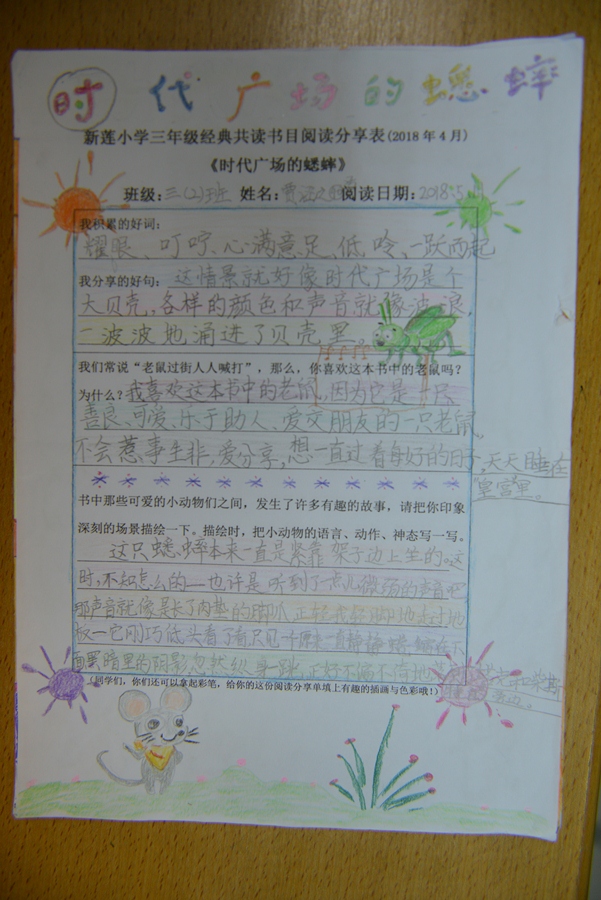 时代广场的蟋蟀
新莲小学三年级经典共读书目阅读分享表(2018年4月)
《时代广场的蟋蟀》
班级:三(2)班 姓名:贾 阅读日期:2018.5
我积累的好词:
耀眼、叮咛、心满意足、低吟、一跃而起
我分享的好句:这情景就好像时代广场是个
大贝壳,各样的颜色和声音就像波浪,
一波波地涌进了贝壳里。
我们常说“老鼠过街人人喊打”,那么,你喜欢这本书中的老鼠吗?
为什么?我喜欢这本书中的老鼠,因为它是一只
善良、可爱、乐于助人、爱交朋友的一只老鼠,
不会惹事生非,爱分享,想一直过着每好的日子,天天睡在
“皇宫”里。
书中那些可爱的小动物们之间,发生了许多有趣的故事,请把你印象
深刻的场景描绘一下。描绘时,把小动物的语言、动作、神态写一写。
这只蟋蟀本来一直是紧靠架子边上坐的。这
时,不知怎么的—也许是听到了一点儿微弱的声音吧
那声音就像是长了肉垫的脚爪,正轻轻轻脚地走过地
板—它刚巧低头看了看只见一个原来一直静静蜷缩在
面黑暗里的阴影忽然纵身一跳,正好不偏不倚地
(同学们,你们还可以拿起彩笔,给你的这份阅读分享单填上有趣的插画与色彩哦!)